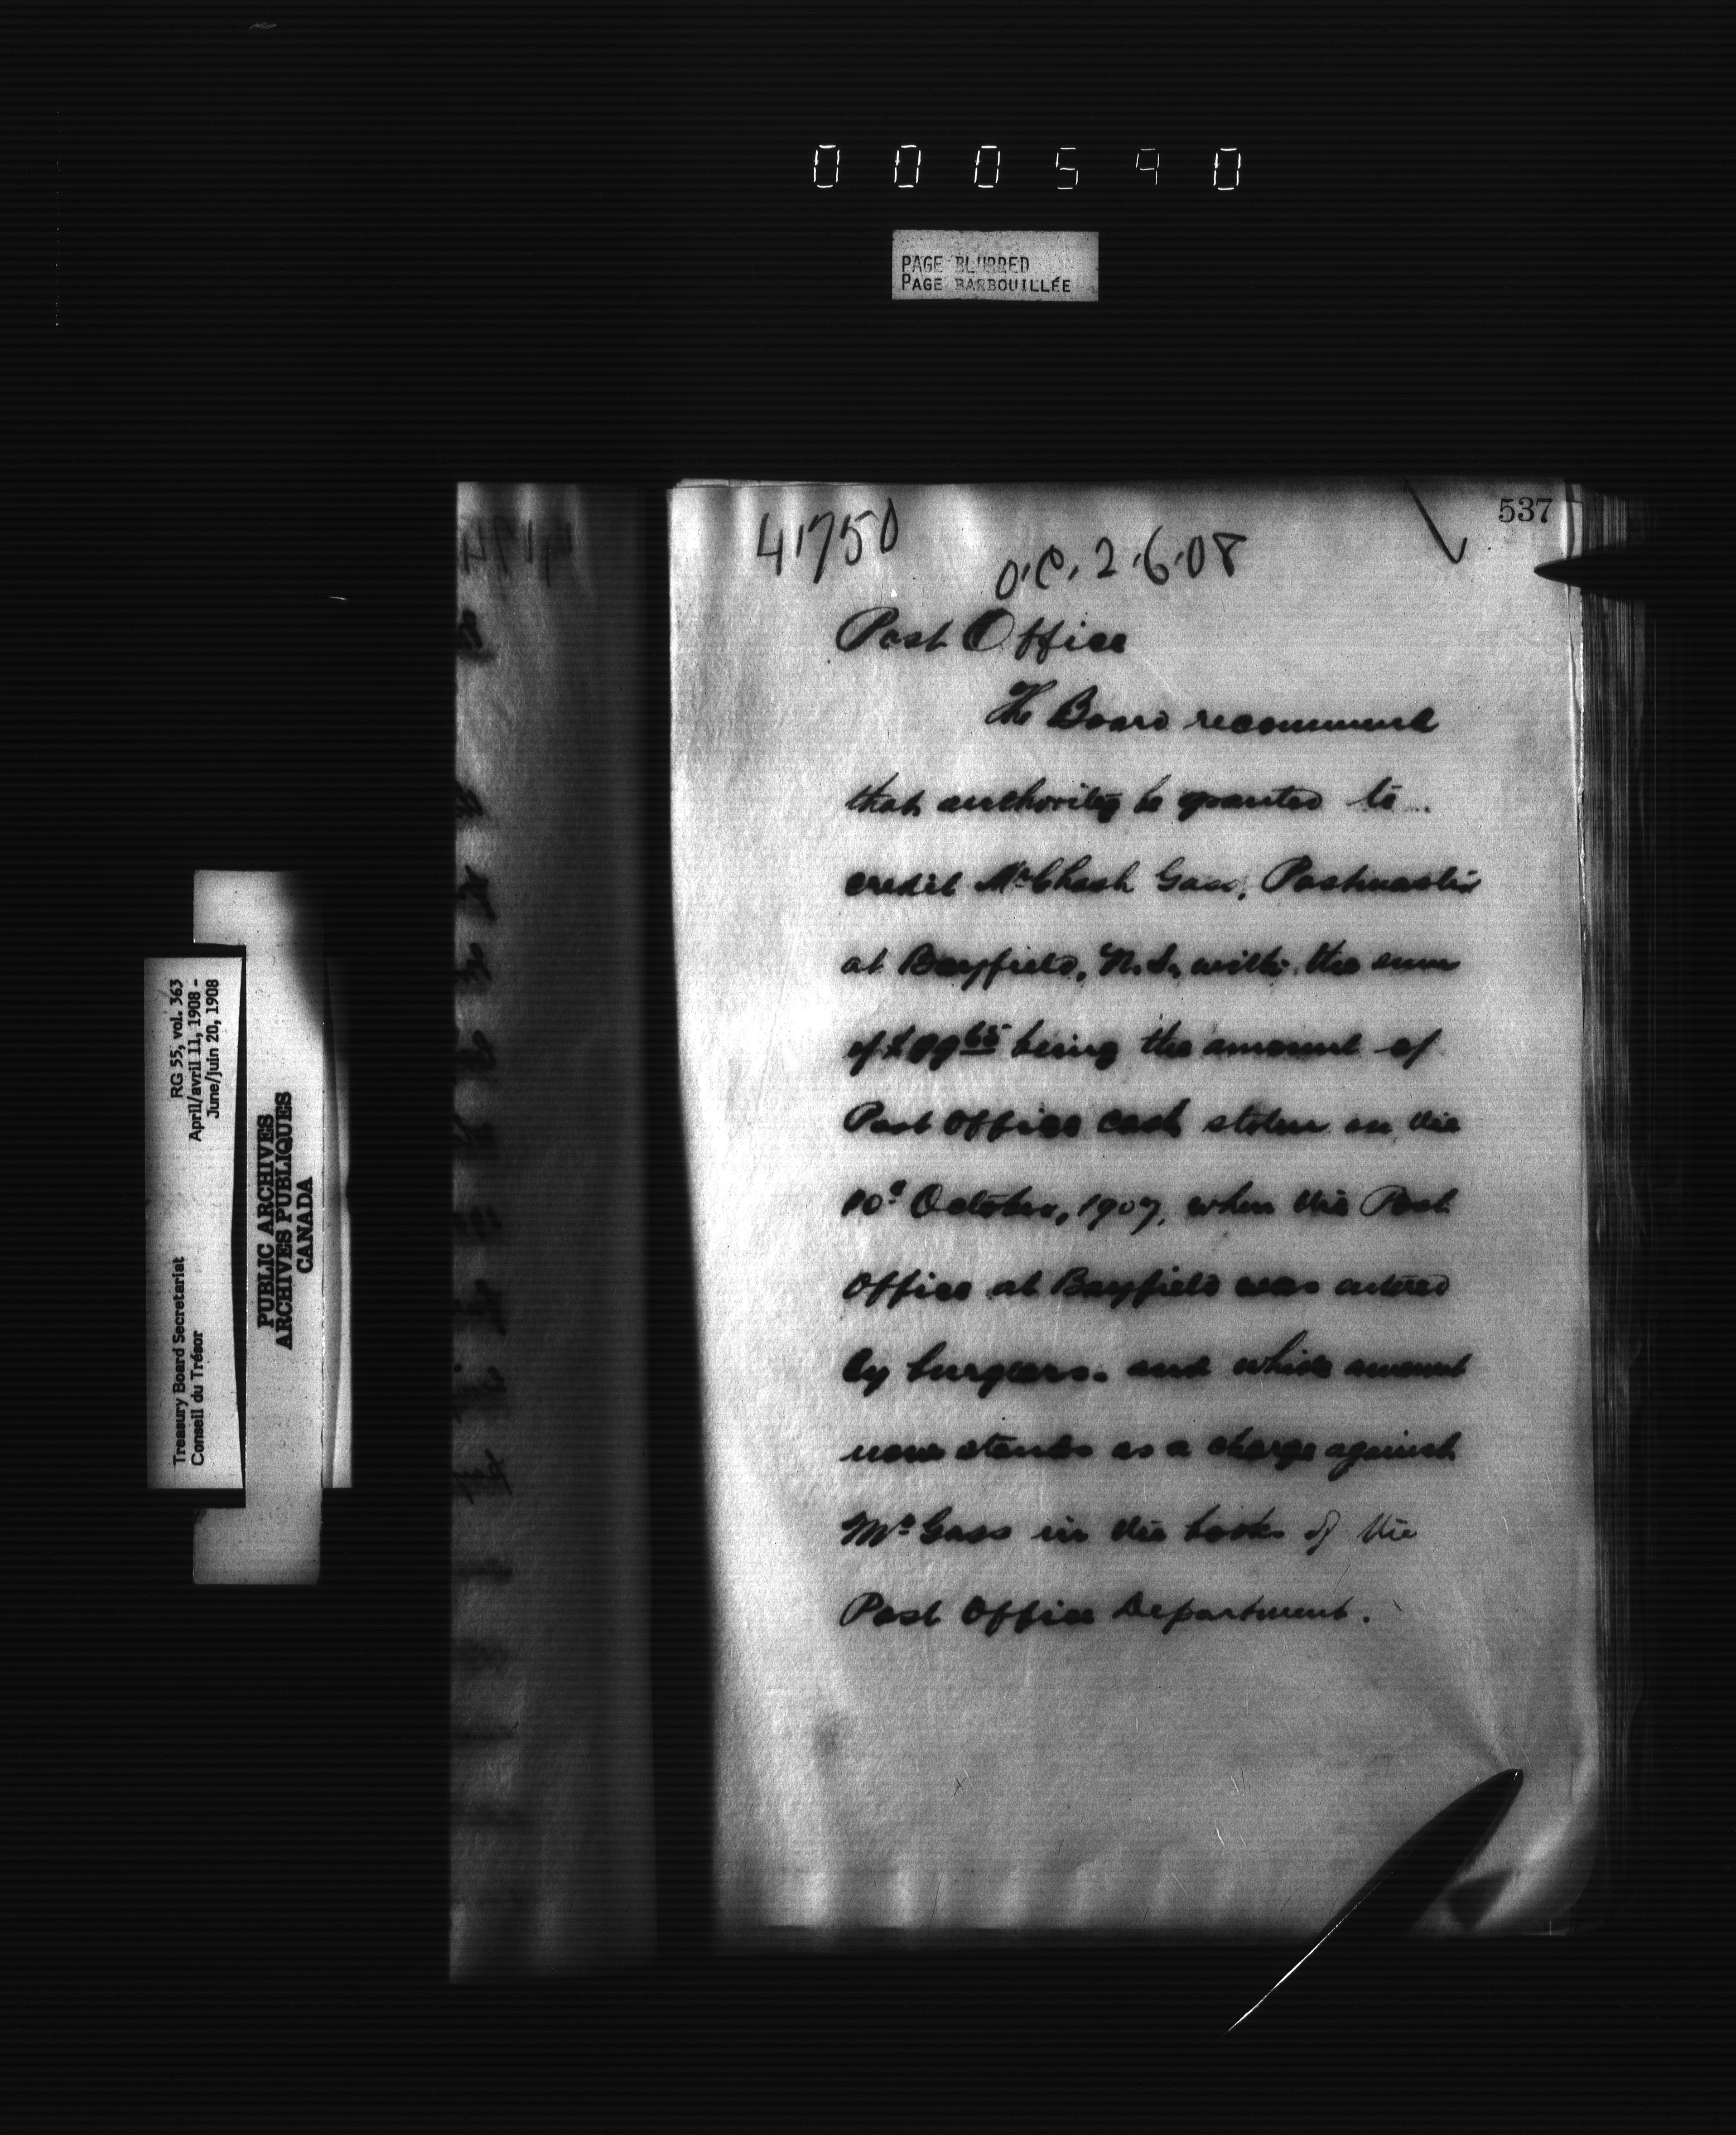 000590
PAGE BLURRED
PAGE BARBOUILLÉE
537
41750
O.C. 2.6.08
Post Office
The Board recommend
that authority be granted to
credit Mr Gass, Postmaster
at Bayfield, N.S. with the sum
of being the amount of
Post Office cash stolen on the
10th October, 1907, when the Post
Office at Bayfield was entered
by burglars. and which amount
now stands as a charge against
Mr Gass in the books of the
Post Office Department.
RG 55, vol. 363
April/avril 11, 1908 -
June/juin 20, 1908
Treasury Board Secretariat
Conseil du Trésor
PUBLIC ARCHIVES
ARCHIVES PUBLIQUES
CANADA